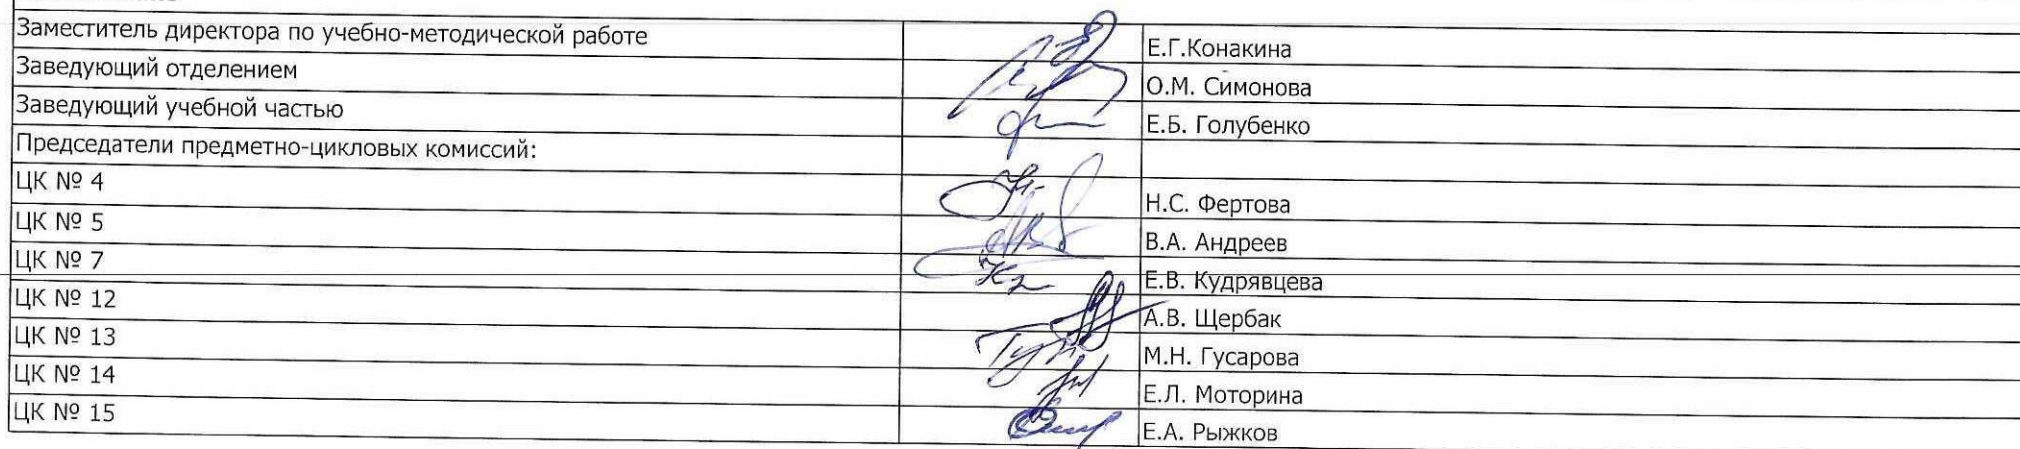 Заместитель директора по учебно-методической работе Е.Г.Конакина
Заведующий отделением О.М. Симонова
Заведующий учебной частью Е.Б. Голубенко
Председатели предметно-цикловых комиссий:
ЦК № 4 Н.С. Фертова
ЦК № 5 В.А. Андреев
ЦК № 7 Е.В. Кудрявцева
ЦК № 12 А.В. Щербак
ЦК № 13 М.Н. Гусарова
ЦК № 14 Е.Л. Моторина
ЦК № 15 Е.А. Рыжков